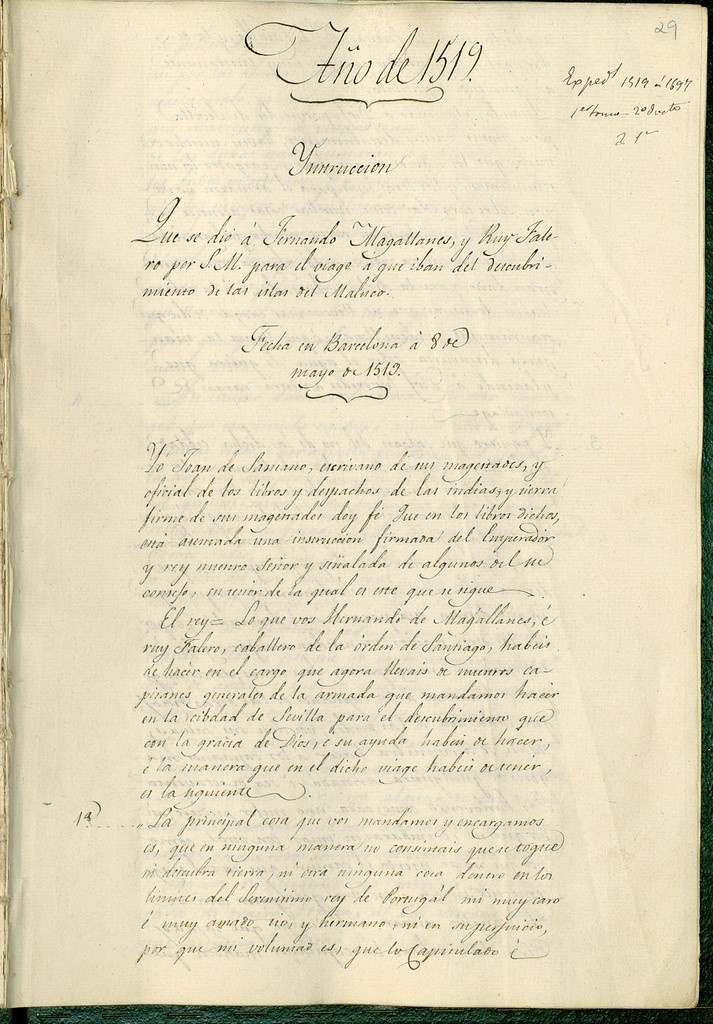 29
Año de 1519.
Exped.t 1519 á 1697
1.er tomo - 2º
2 1º
Ynstruccion
Que se dió á Fernando Magallanes, y Ruy Fale-
ro por S. M. para el viage á que iban del descubri-
miento de las islas del Maluco.
Fecha en Barcelona á 8 de
mayo de 1519.
Yo Joan de Samano, escrivano de sus magestades, y
oficial de los libros y despachos de las indias, y tierra
firme de sus magestades doy fé Que en los libros dichos,
está asentada una instruccion firmada del Emperador
y rey nuestro Señor y señalada de algunos del su
consejo, su tenor de la qual es este que se sigue
El rey = Lo que vos Hernando de Magallanes, é
ruy Falero, caballero de la órden de Santiago, habeis
de hacer en el cargo que agora llevais de nuestros ca-
pitanes generales de la armada que mandamos hacer
en la cibdad de Sevilla para el descubrimiento que
con la gracia de Dios, é su ayuda habeis de hacer,
é la manera que en el dicho viage habeis de tener,
es la siguiente.
1ª
La principal cosa que vos mandamos y encargamos
es, que en ninguna manera no consintais que se toque
ni descubra tierra, ni otra ninguna cosa dentro en los
limites del Serenisimo rey de Portugál mi muy caro
é muy amado tio, y hermano, ni en su perjuicio,
por que mi voluntad es, que lo Capitulado é